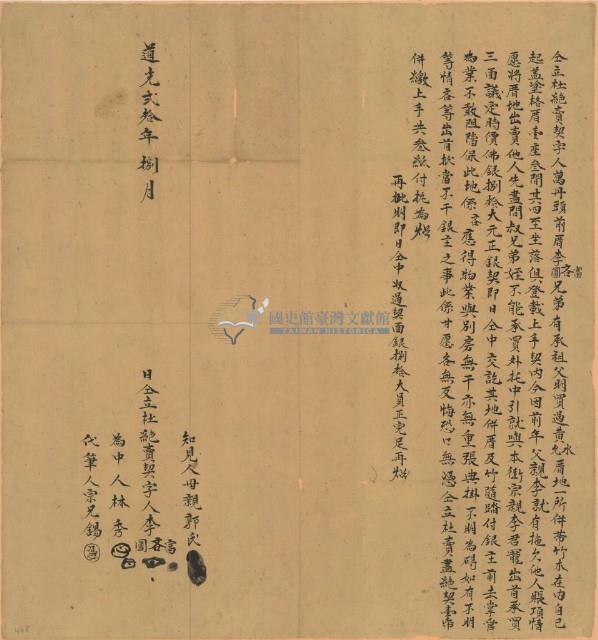 仝立杜絕賣契字人萬丹頭前厝李富吝圓兄弟有承祖父明買過黃水允厝地一所併帶竹木在內自己
起蓋塗格厝壹座叁間其四至坐落俱登載上手契內今因前年父親李就有拖欠他人賬項情
愿將厝地出賣他人先盡問叔兄弟姪不能承買外托中引就與本衝宗親李君龍出首承買
三面議定時價佛銀捌拾大元正銀契即日仝中交訖其地併厝及竹隨踏付銀主前去掌管
為業不敢阻擋保此地係吝應得物業與別房無干亦無重張典掛不明為碍如有不明
等情吝等出首抵當不干銀主之事此係甘愿各無反悔恐口無憑仝立杜賣盡絕契壹帋
併繳上手共叁紙付執為炤
再批明即日仝中收過契面銀捌拾大員正完足再炤
道光弍拾年捌月
知見人母親郭氏
日仝立杜絕賣契字人李富吝圓
為中人林秀
代筆人宗兄錫
國史館臺灣文獻館
TAIWAN HISTORICA